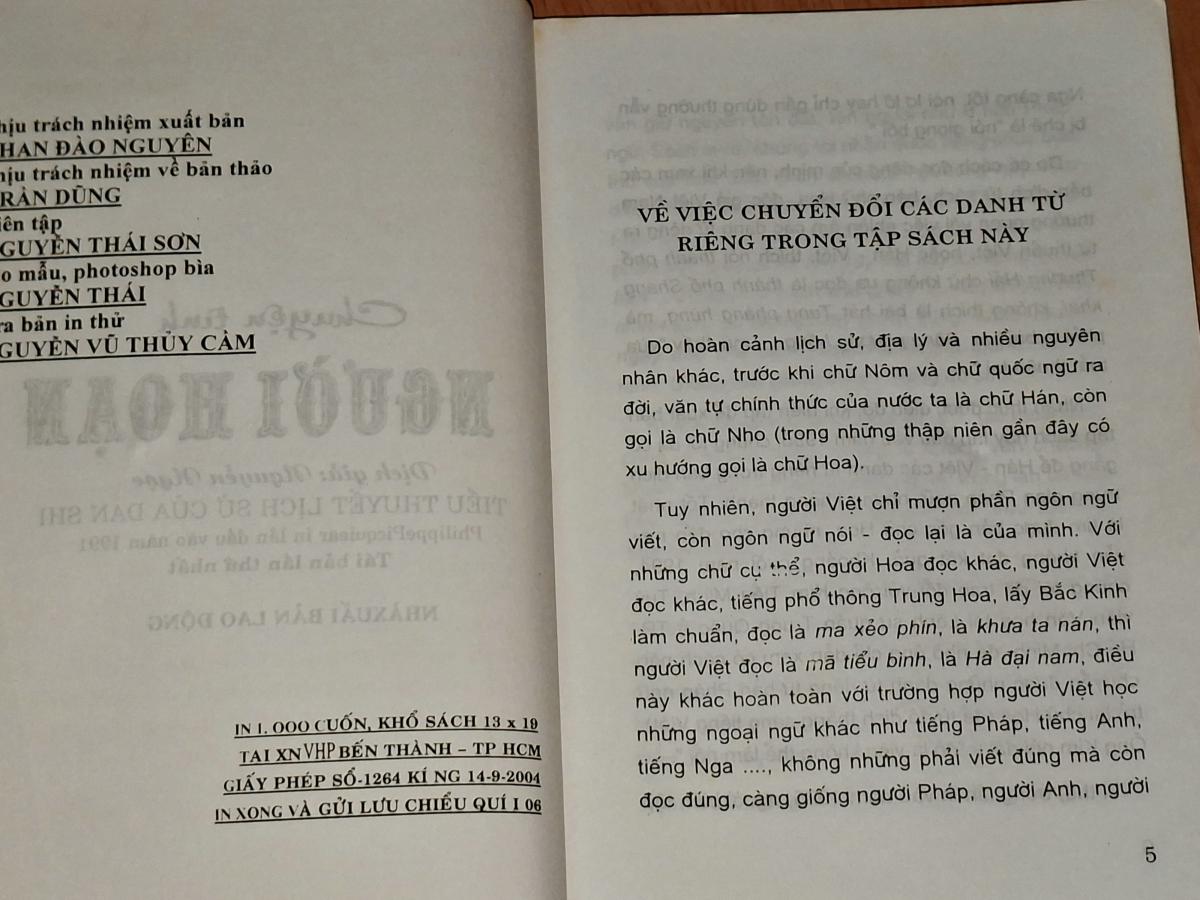 hịu trách nhiệm xuất bản
HAN ĐÀO NGUYÊN
hịu trách nhiệm về bản thảo
RẦN DŨNG
iên tập
GUYỄN THÁI SƠN
o mẫu, photoshop bìa
GUYỄN THÁI
ra bản in thử
GUYỄN VŨ THỦY CẢM
Chuyện tình
NGƯỜI HOẠN
Dịch giả: Nguyễn Ngọc
TIỂU THUYẾT LỊCH SỬ CỦA DAN SHI
PhilippePicquiear in lần đầu vào năm 1991
Tái bản lần thứ nhất
NHÀXUẤT BẢN LAO DỘNG
IN 1. OOO CUỐN, KHỔ SÁCH 13 x 19
TAI XN VHP BẾN THÀNH – TP HCM
GIẤY PHÉP SỐ-1264 KÍ NG 14-9-2004
IN XONG VÀ GỬI LƯU CHIỂU QUÍ I 06
VỀ VIỆC CHUYỂN ĐỔI CÁC DANH TỪ
RIÊNG TRONG TẬP SÁCH NÀY
Do hoàn cảnh lịch sử, địa lý và nhiều nguyên
nhân khác, trước khi chữ Nôm và chữ quốc ngữ ra
đời, văn tự chính thức của nước ta là chữ Hán, còn
gọi là chữ Nho (trong những thập niên gần đây có
xu hướng gọi là chữ Hoa).
Tuy nhiên, người Việt chỉ mượn phần ngôn ngữ
viết, còn ngôn ngữ nói - đọc lại là của mình. Với
những chữ cụ thể, người Hoa đọc khác, người Việt
đọc khác, tiếng phổ thông Trung Hoa, lấy Bắc Kinh
làm chuẩn, đọc là ma xẻo phín, là khưa ta nán, thì
người Việt đọc là mã tiểu bình, là Hà đại nam, điều
này khác hoàn toàn với trường hợp người Việt học
những ngoại ngữ khác như tiếng Pháp, tiếng Anh,
tiếng Nga ...., không những phải viết đúng mà còn
đọc đúng, càng giống người Pháp, người Anh, người
5